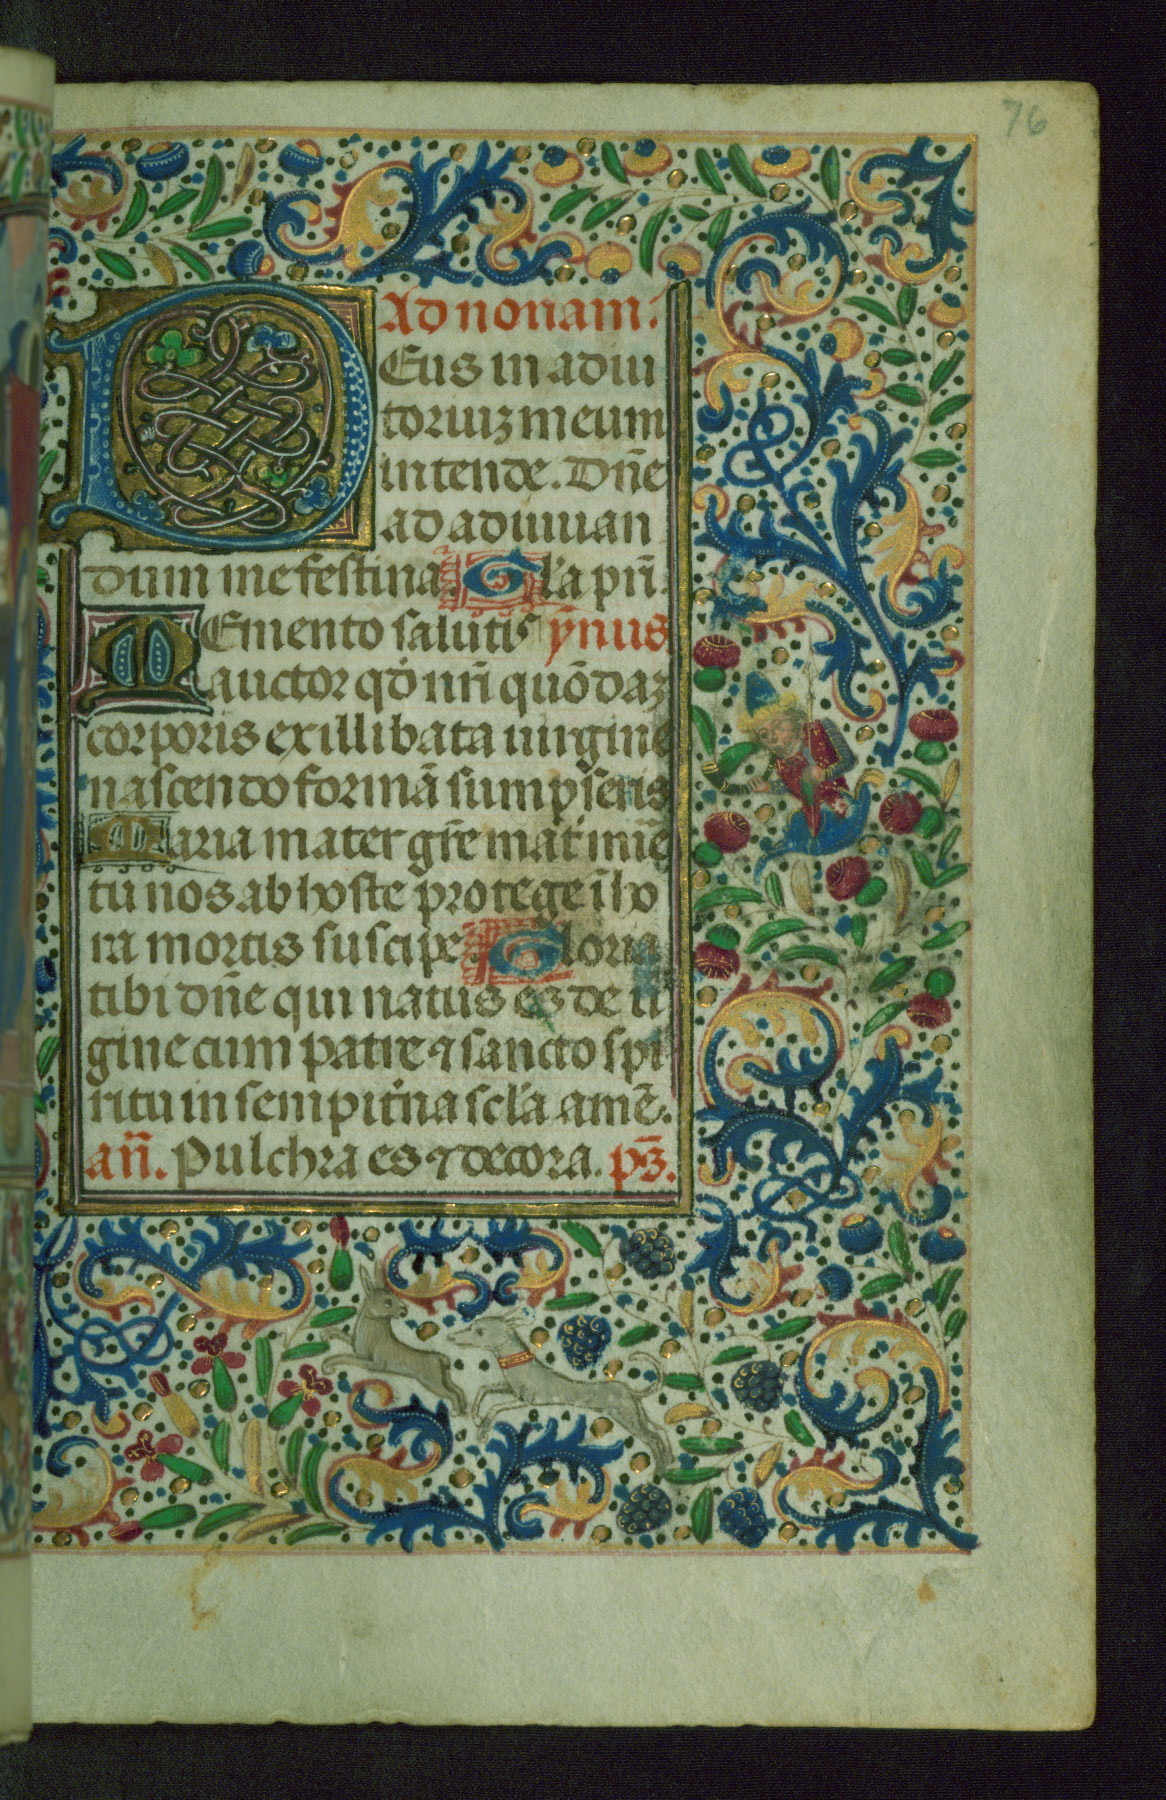 76
Ad nonam.
DEus in adiu
toriuꝫ meum
intende. Dñe
ad adiuuan
dum me festina. Gl'a pr̃i.
MEmento salutis ẏnus
auctor qd̓ nr̃i quōdaꝫ
corporis ex illibata uirgine
nascendo formā sumpseris
Maria mater gr̃e mat̓ mīe
tu nos ab hoste protege ī ho
ra mortis suscipe Gloria
tibi dñe qui natus es de ui
gine cum patre ⁊ sancto spi
ritu in sempit̓na scl'a amē.
añ. Pulchra es ⁊ decora. pꝫ̄.